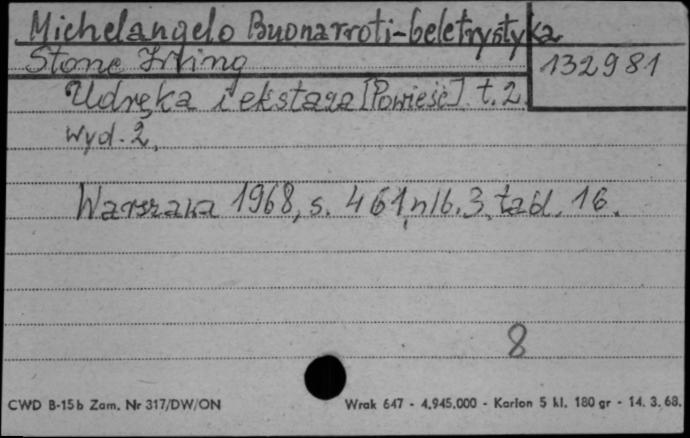 Michelangelo Buonarroti-beletrystyka
Stone Irving
132981
Udręka i ekstaza [Powieść]. t. 2.
Wyd. 2.
Warszawa 1968, s. 461, nlb. 3, tabl. 16.
8
CWD B-15b Zam. Nr 317/DW/ON
Wrak 647 - 4.945.000 - Karton 5 kl. 180 gr - 14. 3. 68.